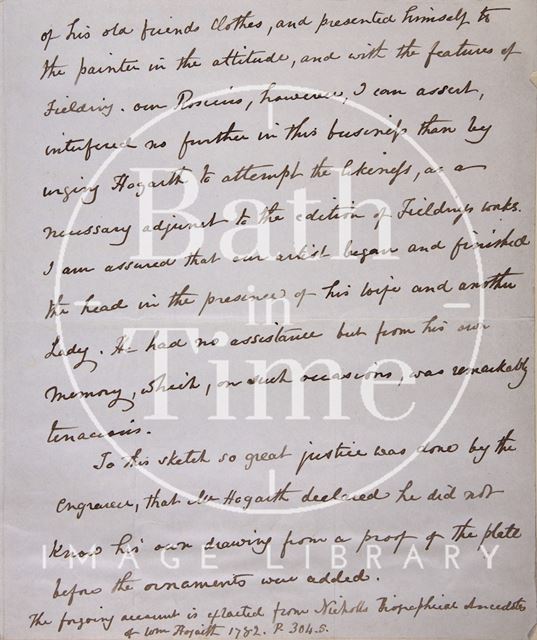 of his old friends Clothes, and presented himself to
the painter in the attitude, and with the features of
Fielding. our Roscius, however, I can assert,
interfered no further in this business than by
urging Hogarth to attempt the likeness, as a
necessary adjunct to the edition of Fieldings works.
I am assured that our artist began and finished
the head in the presence of his wife and another
Lady. He had no assistance but from his own
memory, which, on such occasions, was remarkably
tenacious.
To this sketch so great justice was done by the
Engraver, that Mr Hogarth declared he did not
know his own drawing from a proof of the plate
before the ornaments were added.
The forgoing account is extracted from Nicholls Biographical Anecdotes
of Wm Hogarth 1782. P. 304.5.
Bath
in
Time
IMAGE LIBRARY